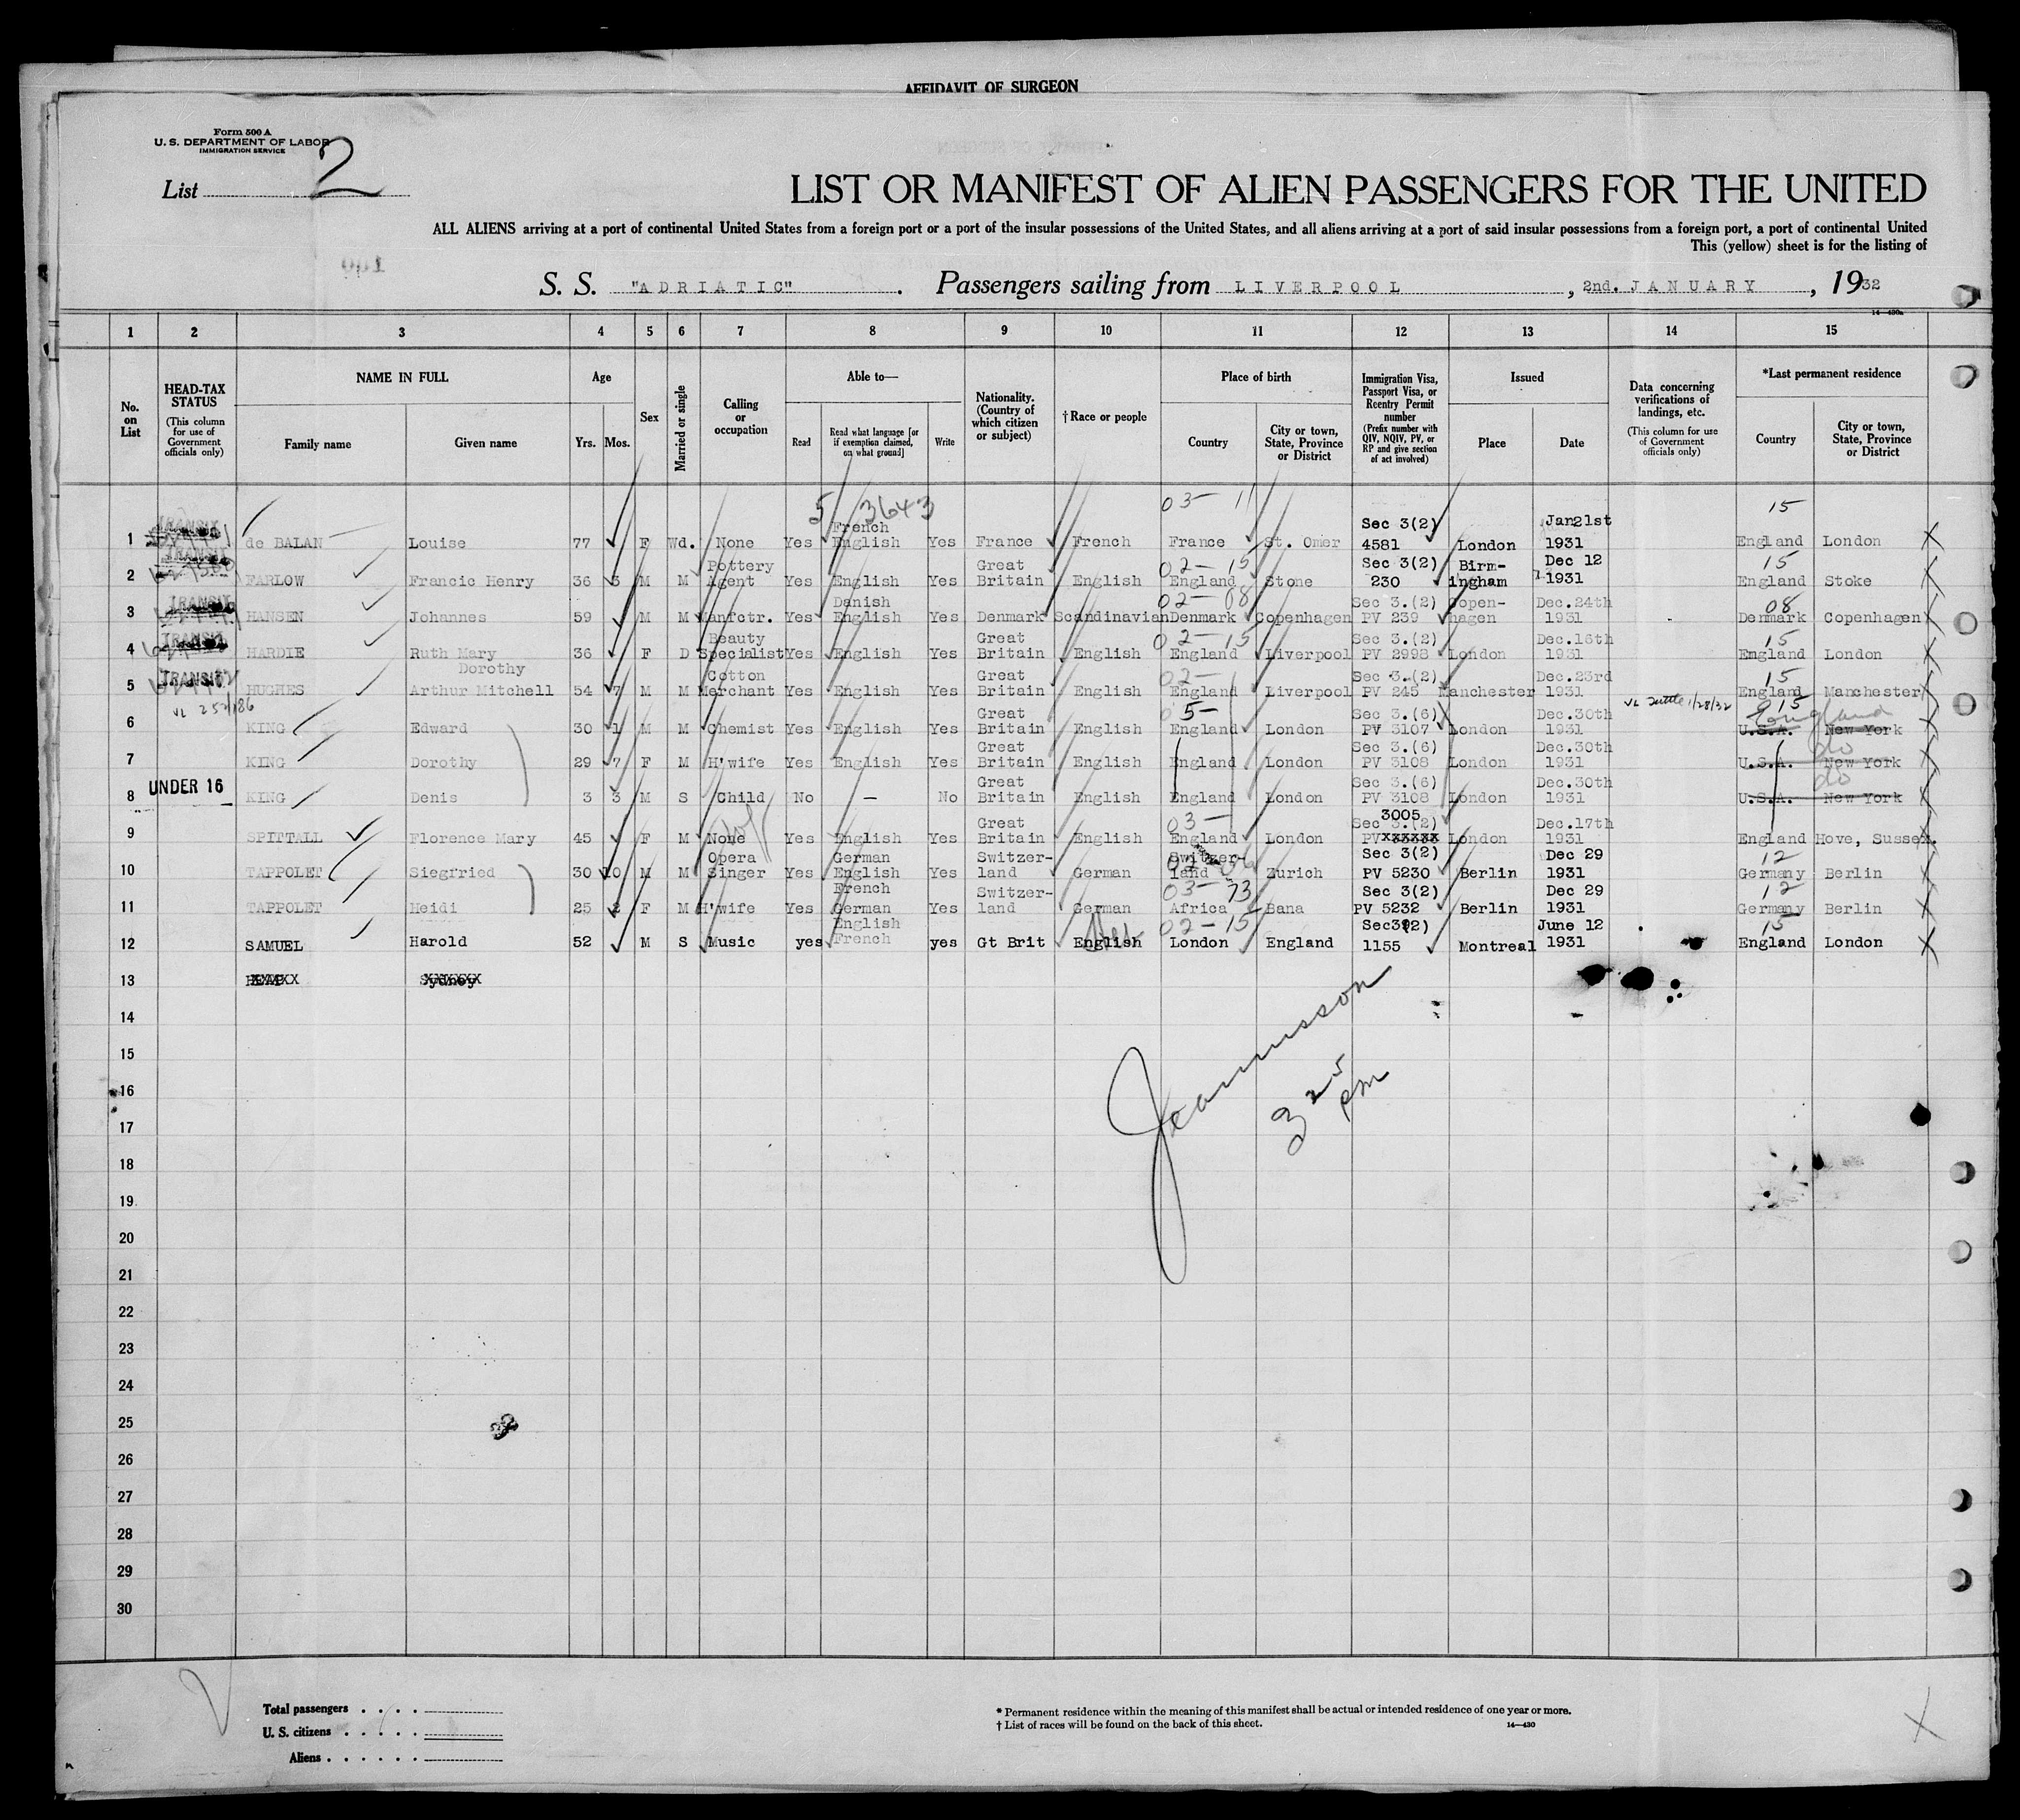 AFFIDAVIT OF SURGEON
Form 500 A
U. S. DEPARTMENT OF LABOR
IMMIGRATION SERVICE
List 2
LIST OR MANIFEST OF ALIEN PASSENGERS FOR THE UNITED
ALL ALIENS arriving at a port of continental United States from a foreign port or a port of the insular possessions of the United States, and all aliens arriving at a port of said insular possessions from a foreign port, a port of continental United
This (yellow) sheet is for the listing of
S. S. "ADRIATIC". Passengers sailing from LIVERPOOL, 2nd. JANUARY, 1932
14—430a
1 2 3 4 5 6 7 8 9 10 11 12 13 14 15
No. on List
HEAD-TAX STATUS
(This column for use of Government officials only)
NAME IN FULL
Family name
Given name
Age
Yrs. Mos.
Sex
Married or single
Calling or occupation
Able to—
Read
Read what language [or if exemption claimed, on what ground]
Write
Nationality. (Country of which citizen or subject)
† Race or people
Place of birth
Country
City or town, State, Province or District
Immigration Visa, Passport Visa, or Reentry Permit number
(Prefix number with QIV, NQIV, PV, or RP and give section of act involved)
Issued
Place
Date
Data concerning verifications of landings, etc.
(This column for use of Government officials only)
*Last permanent residence
Country
City or town, State, Province or District
5 3643 03- 11 15
TRANSIT French Sec 3(2) Jan21st
1 de BALAN Louise 77 F Wd. None Yes English Yes France French France St. Omer 4581 London 1931 England London
TRANSIT Pottery Great 02-15 Sec 3(2) Birm- Dec 12 15
2 FARLOW Francic Henry 36 3 M M Agent Yes English Yes Britain English England Stone 230 ingham 1931 England Stoke
TRANSIT Danish 02-08 Sec 3.(2) Copen- Dec.24th 08
3 HANSEN Johannes 59 M M Manfctr. Yes English Yes Denmark Scandinavian Denmark Copenhagen PV 239 hagen 1931 Denmark Copenhagen
TRANSIT Beauty Great 02-15 Sec 3.(2) Dec.16th 15
4 HARDIE Ruth Mary 36 F D Specialist Yes English Yes Britain English England Liverpool PV 2998 London 1931 England London
Dorothy
TRANSIT Cotton Great 02- Sec 3.(2) Dec.23rd 15
5 HUGHES Arthur Mitchell 54 7 M M Merchant Yes English Yes Britain English England Liverpool PV 245 Manchester 1931 England Manchester
VL 252/186 Great 05- Sec 3.(6) Dec.30th 1/28/32 15 England
6 KING Edward 30 1 M M Chemist Yes English Yes Britain English England London PV 3107 London 1931 U.S.A. New York
Great Sec 3.(6) Dec.30th do
7 KING Dorothy 29 7 F M H'wife Yes English Yes Britain English England London PV 3108 London 1931 U.S.A. New York
UNDER 16 Great Sec 3.(6) Dec.30th do
8 KING Denis 3 3 M S Child No — No Britain English England London PV 3108 London 1931 U.S.A. New York
Great 03- 3005 Sec 3.(2) Dec.17th
9 SPITTALL Florence Mary 45 F M None Yes English Yes Britain English England London PVxxxxxx London 1931 England Hove, Sussex.
Opera German Switzer- Switzer- Sec 3(2) Dec 29 12
10 TAPPOLET Siegfried 30 10 M M Singer Yes English Yes land German land Zurich PV 5230 Berlin 1931 Germany Berlin
French Switzer- 03- 73 Sec 3(2) Dec 29 12
11 TAPPOLET Heidi 25 2 F M H'wife Yes German Yes land German Africa Bana PV 5232 Berlin 1931 Germany Berlin
English 02-15 June 12 15
12 SAMUEL Harold 52 M S Music yes French yes Gt Brit English London England 1155 Montreal 1931 England London
13 Sydney
14
15
16
17
18
19
20
21
22
23
24
25
26
27
28
29
30
3 25 pm
Total passengers
U. S. citizens
Aliens
* Permanent residence within the meaning of this manifest shall be actual or intended residence of one year or more.
† List of races will be found on the back of this sheet.
14—430